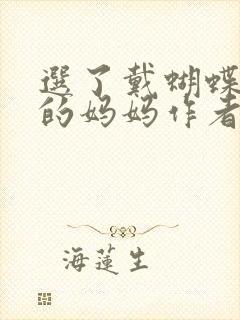 選了戴蝴蝶
的妈妈作者
海蓮生